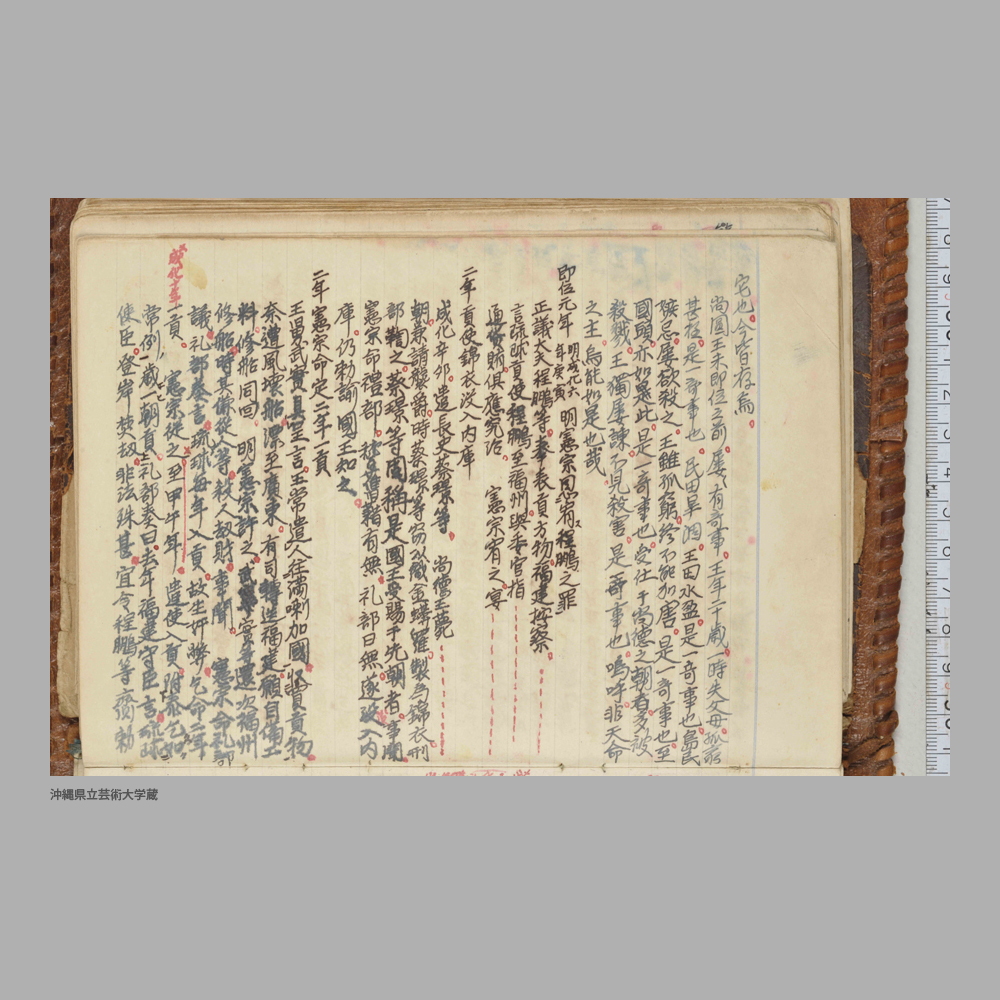 宅也今皆存焉
尚圓王未即位之前屢有奇事王年二十歳一時失父母孤窮
甚極是一奇事也民田旱涸王田水盈是一奇事也島民
疾忌屢欲殺之王雖孤窮終不能加害是一奇事也至
國頭亦如是此是一奇事也受仕于尚德之朝者多被
殺戮王獨屢諫不見殺害是一奇事也嗚呼非天命
之主焉能如是也哉
即位元年明成化六年庚寅明憲宗恩宥程鵬之罪
正議大夫程鵬等奉表貢方物福建按察
言琉球貢使程鵬至福州與委官指
通賄俱應究治憲宗宥之宴
二年貢使錦衣没入内庫
成化辛卯遣長史蔡璟等尚德王薨
朝兼請襲爵時蔡璟等窃以織金蟒羅製為錦衣刑
部鞫之蔡璟等固稱是國王受賜于先朝者事聞
憲宗命禮部稽舊籍有無礼部曰無遂没入内
庫仍勅諭國王知之
三年憲宗命定二年一貢
王舅武實具呈言王常遣人往滿喇加國收買貢物
奈遭風壊船漂至廣東有司轉送福建願自備工
料修船同回明憲宗許之武實等還次福州
修船時其傔從人等殺人劫財事聞憲宗命礼部
議礼部奏言琉球毎年入貢故生奸弊乞命二年
一貢憲宗従之至甲午年遣使入貢附奏乞如
成化十年
常例一歳一朝貢礼部奏曰去年福建守臣言琉球
使臣登岸焚劫非法殊甚宜令程鵬等齎勅
沖縄県立芸術大学蔵